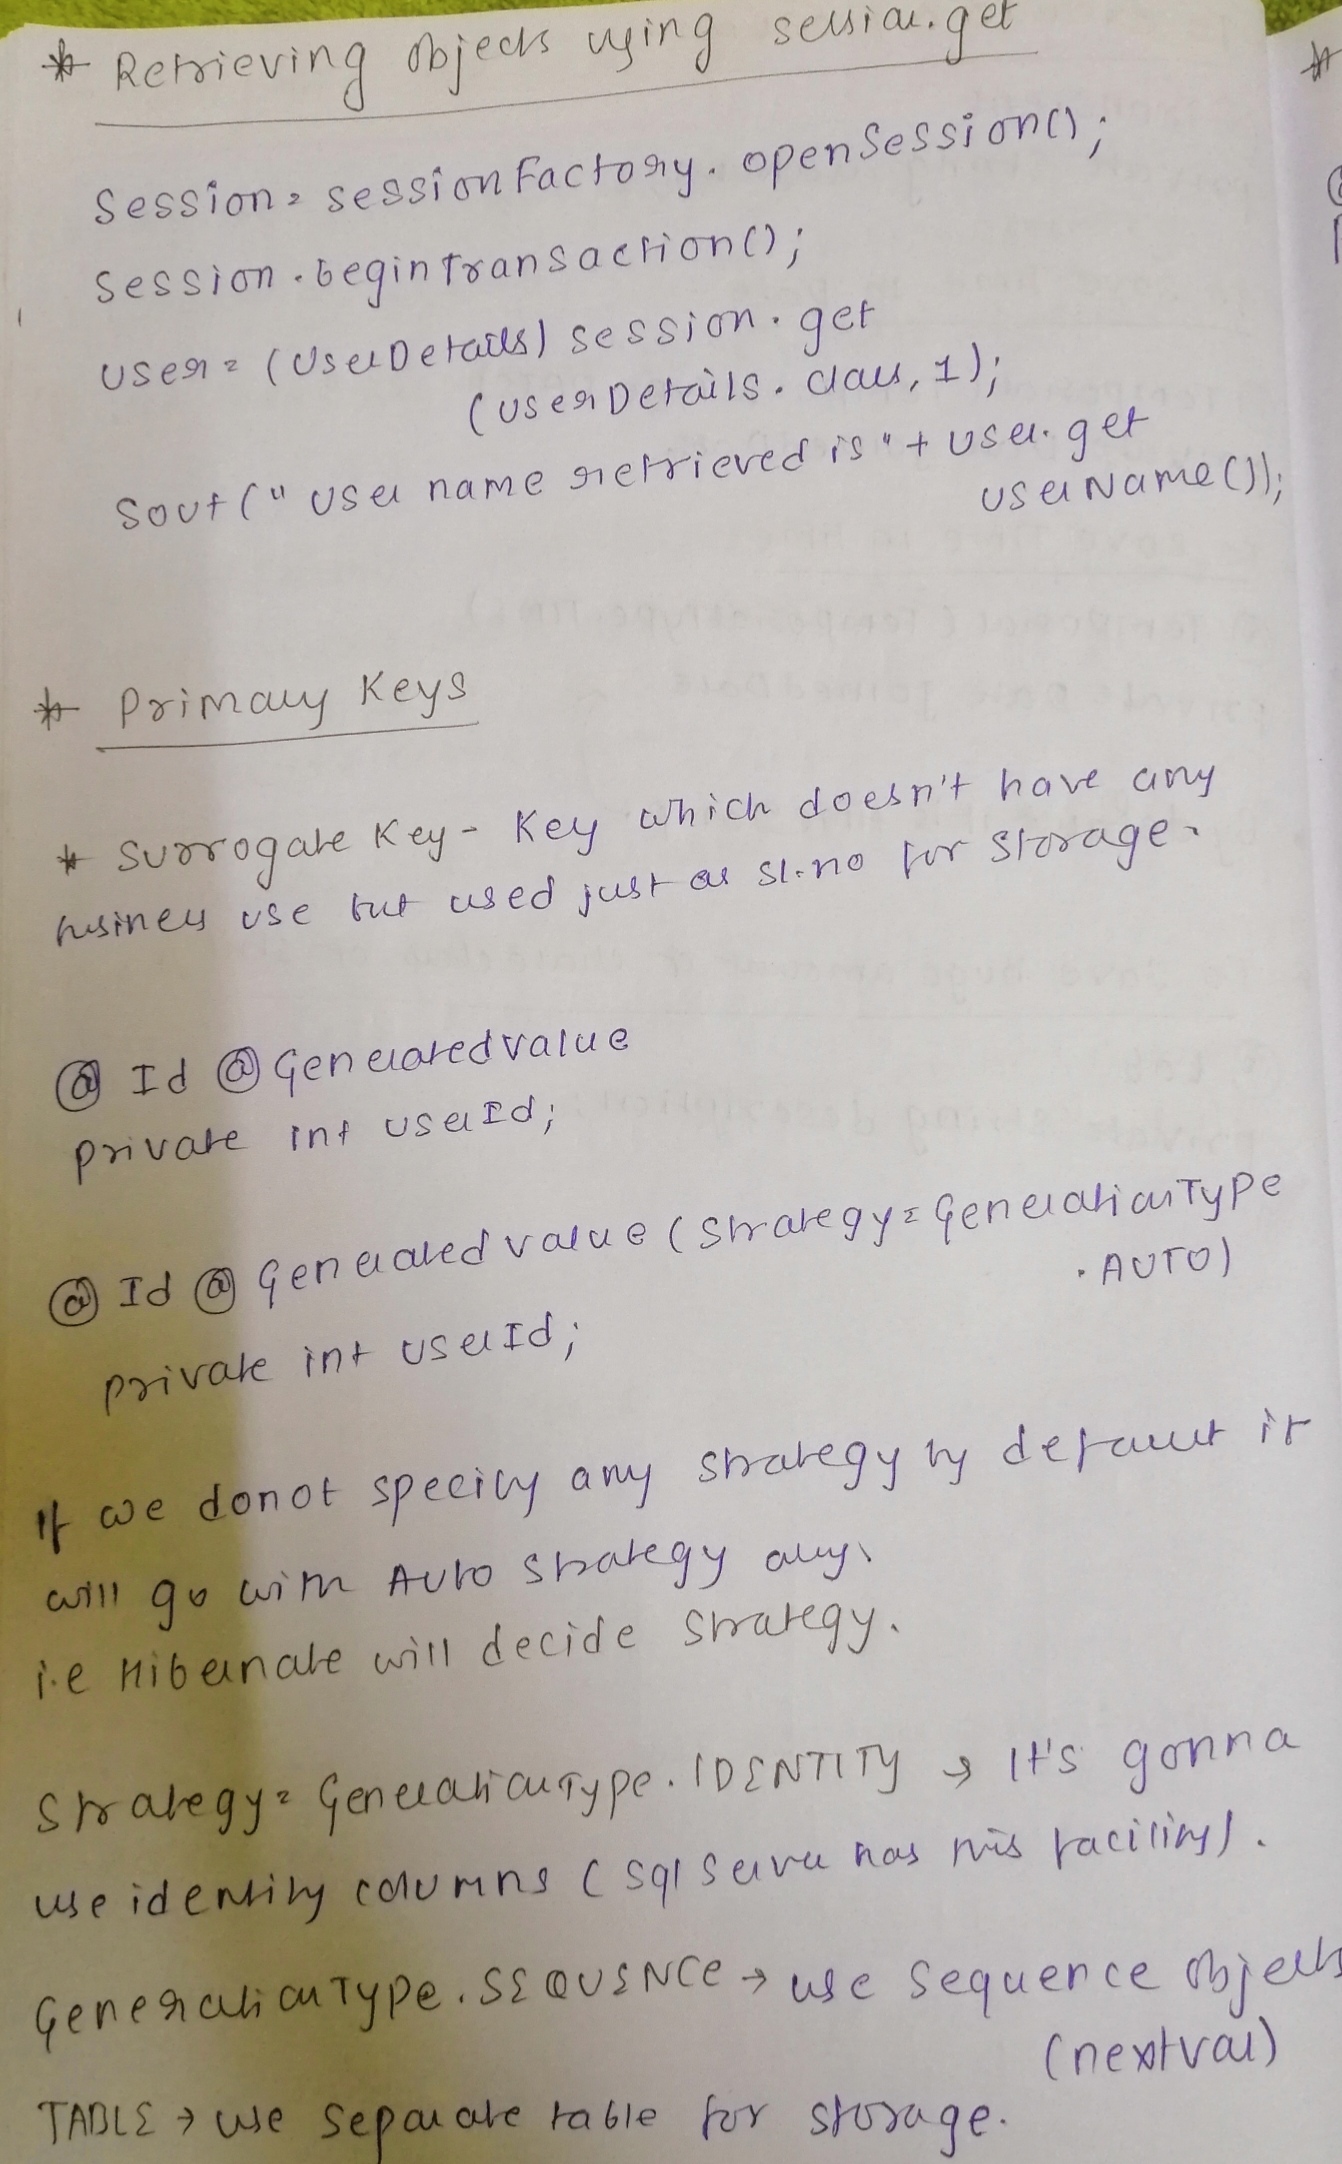 * Retrieving Objects using session.get
Session = sessionFactory.openSession();
Session.beginTransaction();
user = (UserDetails) session.get
(userDetails.class, 1);
Sout("user name retrieved is" + user.get
userName());
* Primary Keys
* Surrogate Key - Key which doesn't have any
business use but used just as sl.no for storage.
@Id @GeneratedValue
private int userId;
@Id @Generatedvalue (Strategy = GenerationType
.AUTO)
private int userId;
If we donot specify any strategy by default it
will go with Auto strategy
i.e Hibernate will decide strategy.
Strategy = GenerationType.IDENTITY → It's gonna
use identity columns (sql server has this facility).
GenerationType.SEQUENCE → use sequence objects
(nextval)
TABLE → use separate table for storage.